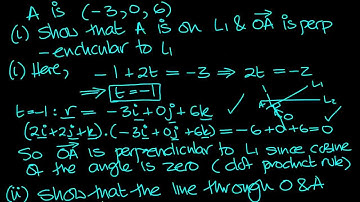 A is (-3, 0, 6)
(i) Show that A is on L₁ & OA is perp
-endicular to L₁
(i) Here, -1+2t = -3 ⇒ 2t = -2
⇒ t=-1
L₁
L₂
A
O
t=-1: r = -3i+0j+6k ✓
(2i+2j+k).(-3i+0j+6k)=-6+0+6=0 ✓
So OA is perpendicular to L₁ since cosine
of the angle is zero (dot product rule)
(ii) Show that the line through O & A